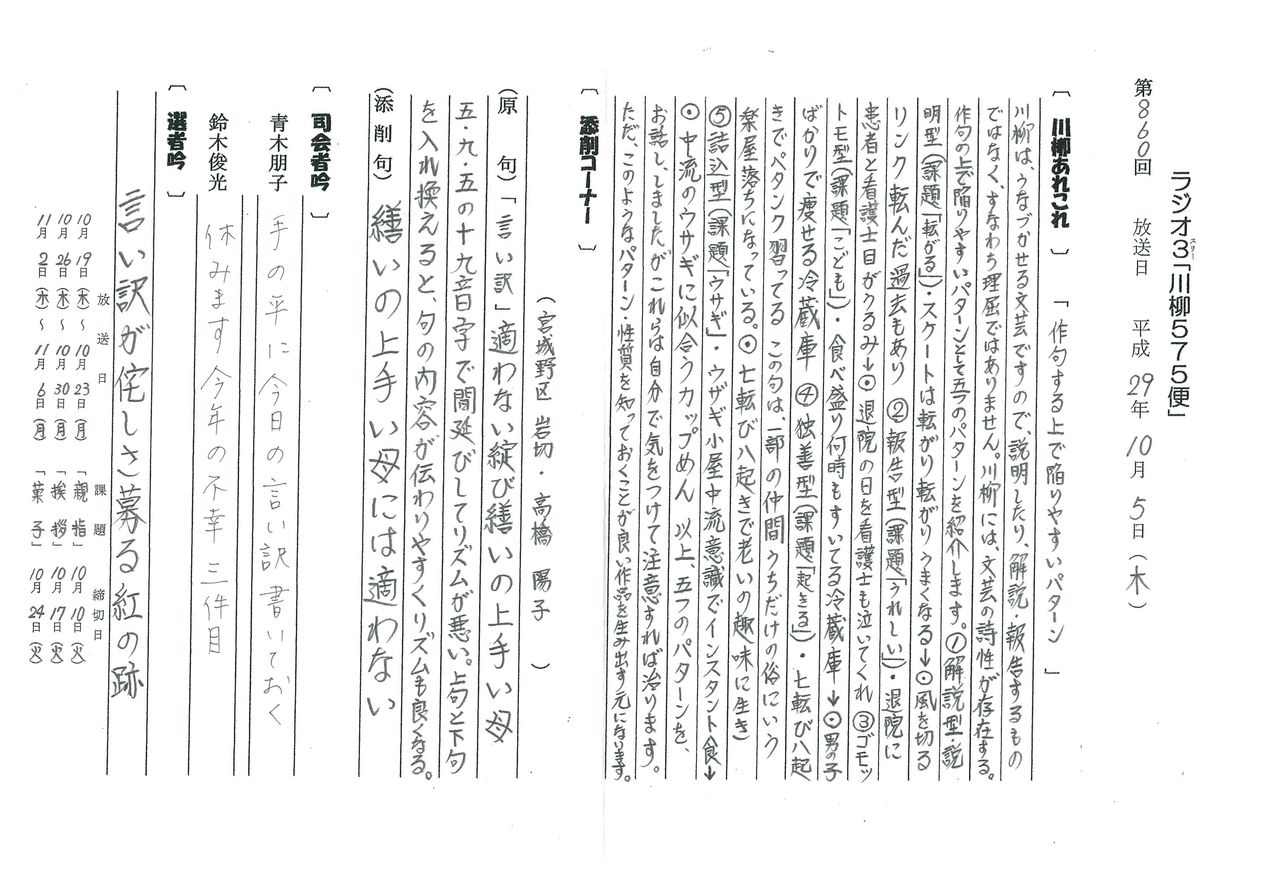 ラジオ3「川柳575便」
スリー
第860回 放送日 平成29年10月5日(木)
〔川柳あれこれ〕「作句する上で陥りやすいパターン」
川柳は、うなづかせる文芸ですので、説明したり、解説・報告するもの
ではなく、すなわち理屈ではありません。川柳には、文芸の詩性が存在する。
作句の上で陥りやすいパターンとして五つのパターンを紹介します。①解説型・説
明型(課題「転がる」)・スケートは転がり転がりうまくなる→⊙風を切る
リンク転んだ過去もあり ②報告型(課題「うれしい」)・退院に
患者と看護士目がうるみ→⊙退院の日を看護士も泣いてくれ ③ゴモッ
トモ型(課題「こども」)・食べ盛り何時もすいてる冷蔵庫→⊙男の子
ばかりで痩せる冷蔵庫 ④独善型(課題「起きる」)・七転び八起
きでペタンク習ってる この句は、一部の仲間うちだけの俗にいう
楽屋落ちになっている。⊙七転び八起きで老いの趣味に生き
⑤詰込型(課題「ウサギ」・ウサギ小屋中流意識でインスタント食→
⊙中流のウサギに似合うカップめん 以上、五つのパターンを、
お話ししましたが、これらは自分で気をつけて注意すれば治ります。
ただ、このようなパターン・性質を知っておくことが良い作品を生み出す元になります。
〔添削コーナー〕
(宮城野区 岩切・高橋 陽子)
(原 句)「言い訳」適わない綻び繕いの上手い母
五・九・五の十九音字で間延びしてリズムが悪い。上句と下句
を入れ換えると、句の内容が伝わりやすくリズムも良くなる。
(添削句) 繕いの上手い母には適わない
〔司会者吟〕
青木朋子 手の平に今日の言い訳書いておく
鈴木俊光 休みます今年の不幸三件目
〔選者吟〕
言い訳が侘しさ募る紅の跡
放送日 課題 締切日
10月19日(木)～10月23日(月)「親指」10月10日(火)
10月26日(木)～10月30日(月)「挨拶」10月17日(火)
11月2日(木)～11月6日(月)「菓子」10月24日(火)